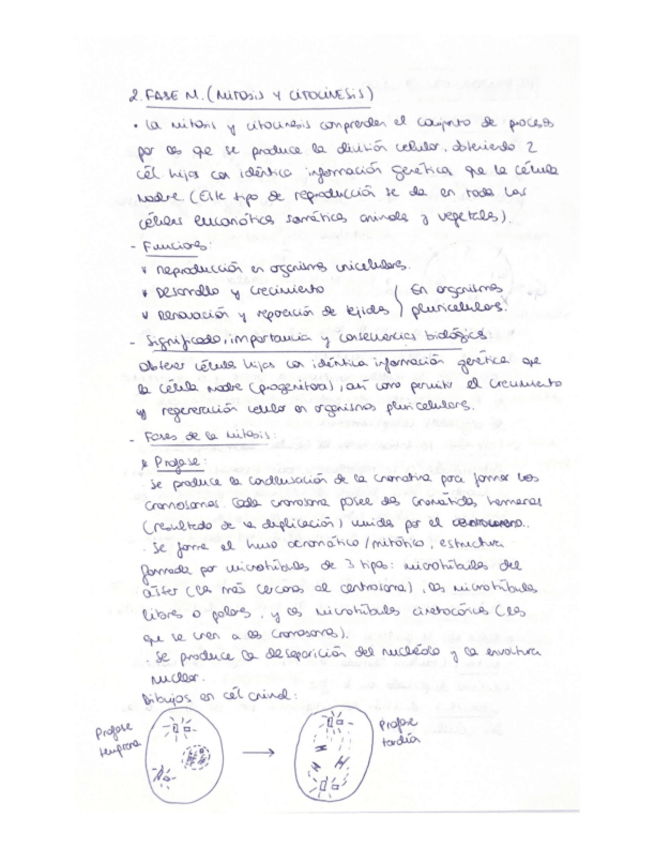 2. FASE M. (MITOSIS Y CITOCINESIS)
• La mitosis y citocinesis comprenden el conjunto de procesos
por los que se produce la división celular, obteniendo 2
cél hijas con idéntica información genética que la célula
madre. (Este tipo de reproducción se da en todas las
células eucarióticas somáticas animales y vegetales).
- Funciones:
* Reproducción en organismos unicelulares.
* Desarrollo y crecimiento
* Renovación y reparación de tejidos } En organismos pluricelulares.
- Significado, importancia y consecuencias biológicas:
Obtener células hijas con idéntica información genética que
la célula madre (progenitora), así como permitir el crecimiento
y regeneración celular en organismos pluricelulares.
- Fases de la mitosis:
* Profase:
· Se produce la condensación de la cromatina para formar los
cromosomas. Cada cromosoma posee dos cromátidas hermanas
(resultado de la duplicación) unidas por el centrómero.
· Se forma el huso acromático/mitótico, estructura
formada por microtúbulos de 3 tipos: microtúbulos del
áster (los más cercanos al centrosoma), los microtúbulos
libres o polares, y los microtúbulos cinetocóricos (los
que se unen a los cromosomas).
· Se produce la desaparición del nucléolo y la envoltura
nuclear.
Dibujos en cél animal:
Profase
temprana
Profase
tardía